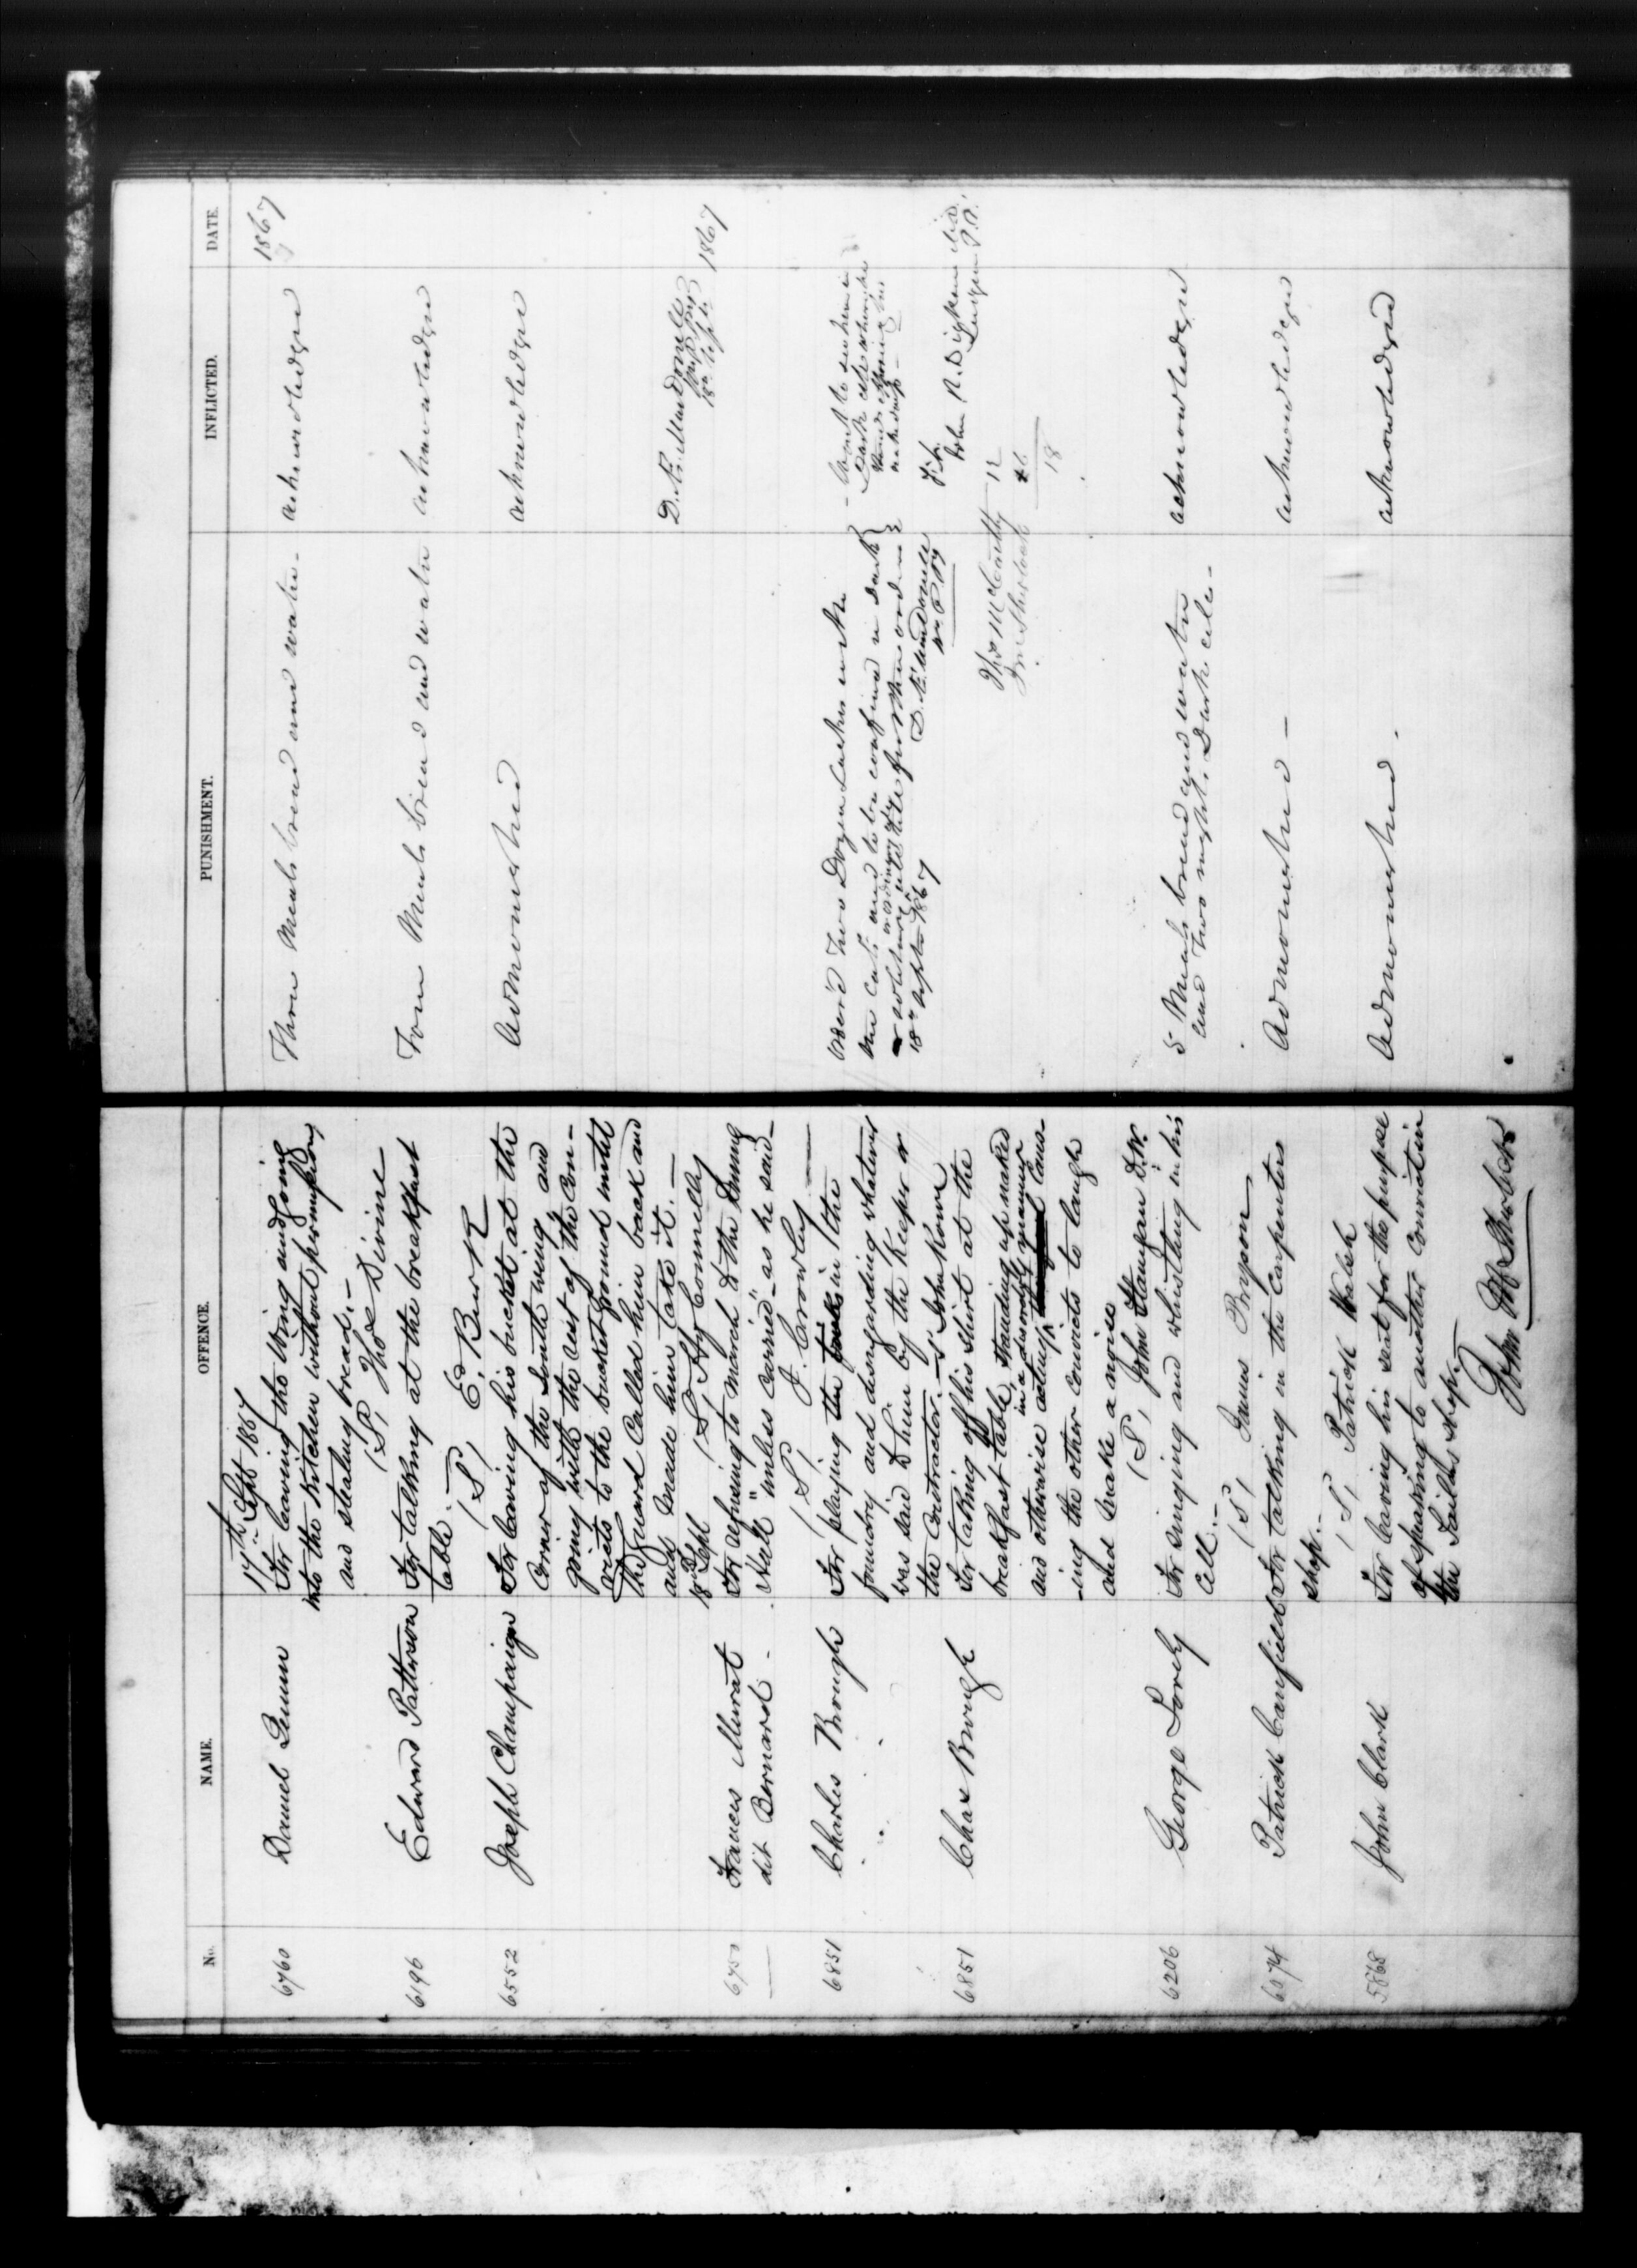 No. NAME. OFFENCE. PUNISHMENT. INFLICTED. DATE.
17th Sept 1867 1867
6760 Daniel Dunn For leaving the Wing and going Three Meals bread and water - acknowledged
into the Kitchen without permission
and stealing bread. -
(S, Thos Divine
6196 Edward Patterson For talking at the breakfast Four Meals bread and water acknowledged
table. -
(S, Ed. Burk
6552 Joseph Champaign For leaving his bucket at the Admonished acknowledged
Corner of the South wing and
going with the rest of the Con-
victs to the bucket ground until
the guard Called him back and
and made him take it. -
(S, Hy Connelly
D. Æ. MacDonell
18th Sept 1867
18 Sept
6750 Frances Murat For refusing to march to the Dining
dit Bernard - Hall "unless carried" as he said -
(S, J. Crowley
6851 Charles Brough For playing the in the Order'd Two Dozen Lashes with
foundry and disregarding whatever the Cats and to be confined in dark
was said to him by the Keeper or
the Contractor. - S, John Kown
18th Septr 1867 D. Æ. MacDonell
John R. Dickson M.D.
Surgeon P.P.
6851 Chas Brough For taking off his shirt at the
breakfast table, standing up naked
in a disorderly manner
and otherwise acting, Caus-
-ing the other convicts to laugh
and make a noise
(S, John Flanigan D.K.
Thos McCarthy 12
Jno Sherlock 6
18
6206 George Lovely For singing and whistling in his 5 Meals bread and water acknowledged
Cell. - and Two nights Dark cell -
(S, James Bryson
6074 Patrick Canfield For talking in the Carpenters Admonished - acknowledged
shop. -
(S, Patrick Walsh
5868 John Clark For leaving his seat for the purpose Admonished. acknowledged
of speaking to another Convict in
the Tailors shop. -